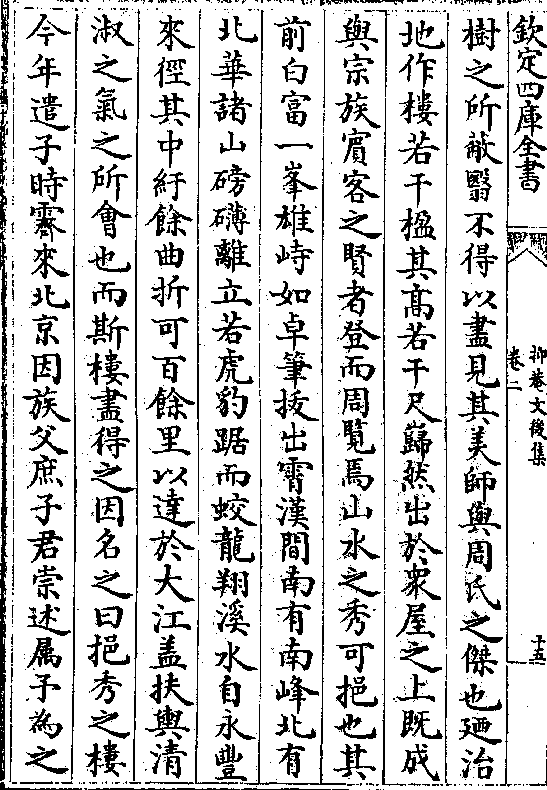 欽定四庫全書
抑菴文後集
卷二
十五
樹之所蔽翳不得以盡見其美師與周氏之傑也廼治
地作樓若干楹其髙若干尺巋然出於衆屋之上既成
與宗族賔客之賢者登而周覽焉山水之秀可挹也其
前白富一峯雄峙如卓筆㧞出霄漢間南有南峰北有
北華諸山磅礴離立若虎豹踞而蛟龍翔溪水自永豐
來徑其中紆餘曲折可百餘里以達於大江盖扶輿清
淑之氣之所會也而斯樓盡得之因名之曰挹秀之樓
今年遣子時霽來北京因族父庶子君崇述属予為之